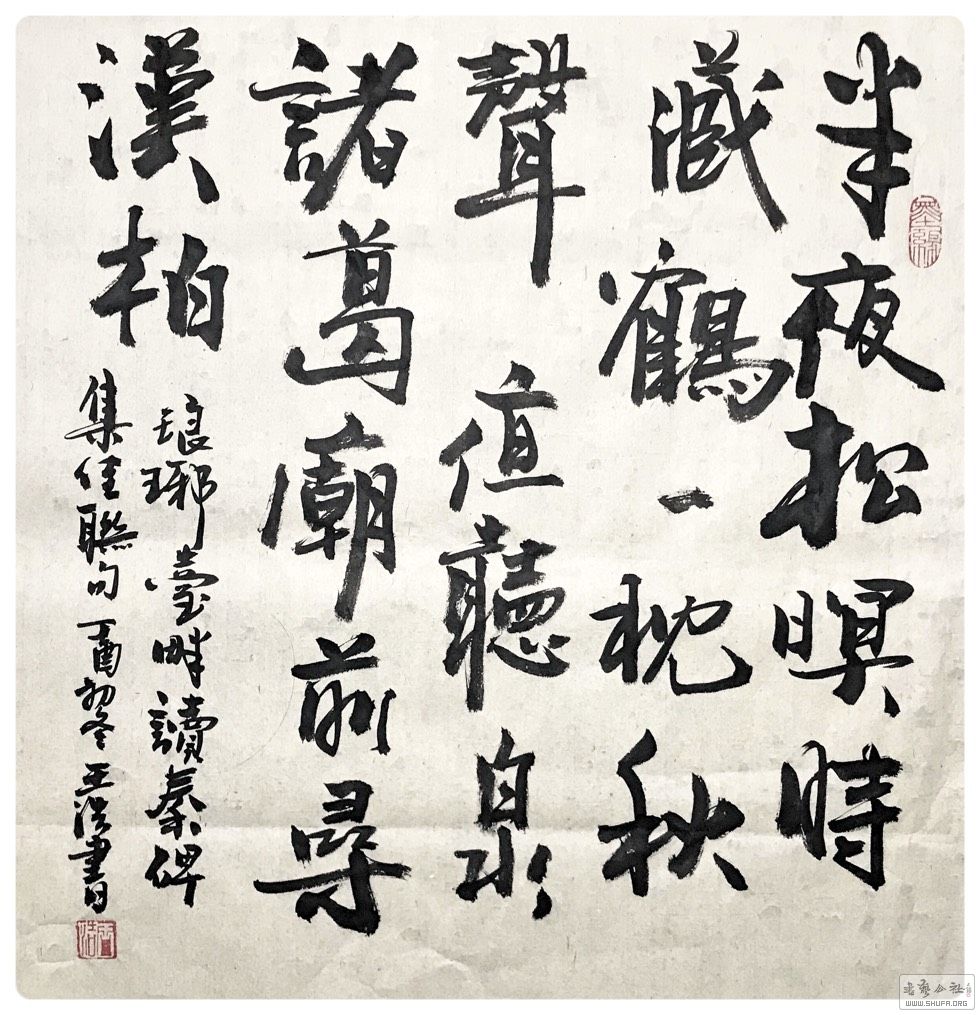 半夜松暝時
藏鶴一枕秋
聲值聽泉
諸葛廟前尋
漢柏
琅琊臺畔讀秦碑
集佳聯句 丁酉初冬 王浩書
WWW.SHUFA.ORG